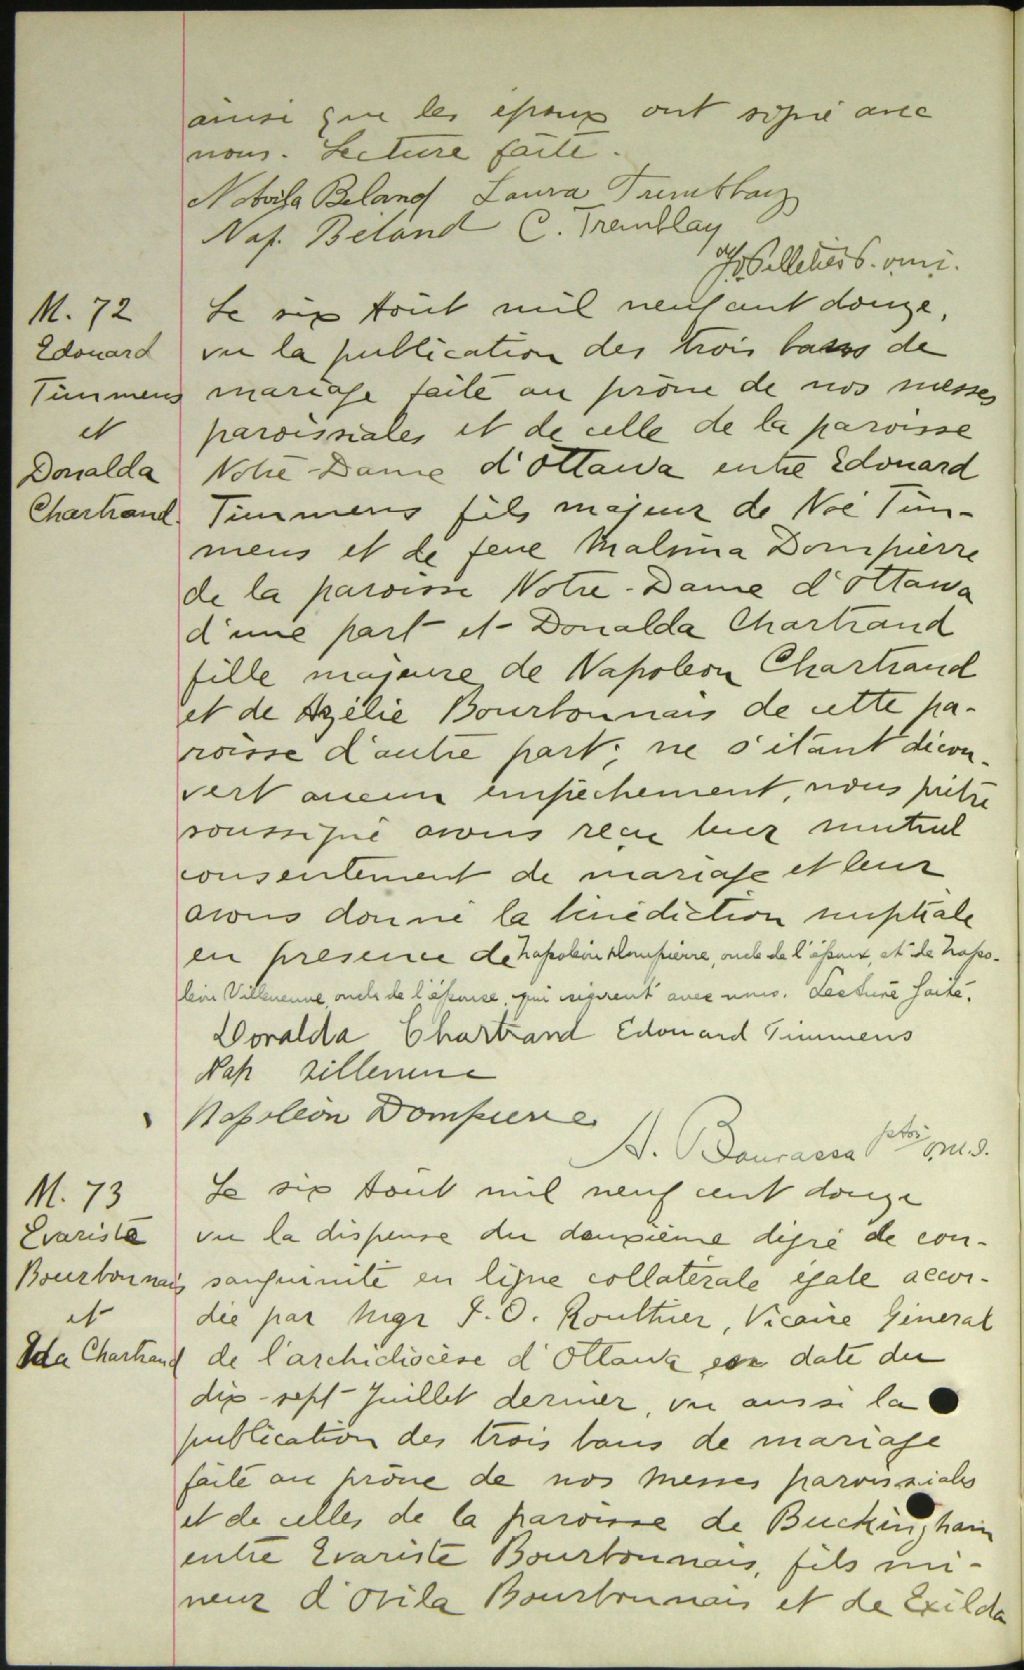 ainsi que les époux ont signé avec
nous. Lecture faite.
Novila Beland Laura Tremblay
Nap. Béland C. Tremblay
Pelletier o.m.i.
M. 72
Edouard
Timmens
et
Donalda
Chartrand.
Le six Août mil neuf cent douze,
vu la publication des trois bans de
mariage faite au prône de nos messes
paroissiales et de celle de la paroisse
Notre-Dame d'Ottawa entre Edouard
Timmens fils majeur de Noé Tim-
mens et de feue Malvina Dompierre
de la paroisse Notre-Dame d'Ottawa
d'une part et Donalda Chartrand
fille majeure de Napoleon Chartrand
et de Azélie Bourbonnais de cette pa-
roisse d'autre part; ne s'étant décou-
vert aucun empêchement, nous prêtre
soussigné avons reçu leur mutuel
consentement de mariage et leur
avons donné la bénédiction nuptiale
en presence de Napoléon Dompierre, oncle de l'époux, et de Napo-
léon Villeneuve, oncle de l'épouse, qui signent avec nous. Lecture faite.
Donalda Chartrand Edouard Timmens
Nap Villeneuve
Napoléon Dompierre
A. Bourassa ptre o.m.i.
M. 73
Evariste
Bourbonnais
et
Ida Chartrand
Le six Août mil neuf cent douze
vu la dispense du deuxième degré de con-
sanguinité en ligne collatérale égale accor-
dée par Mgr J. O. Routhier, Vicaire Général
de l'archidiocèse d'Ottawa en date du
dix-sept Juillet dernier, vu aussi la
publication des trois bans de mariage
faite au prône de nos messes paroissiales
et de celles de la paroisse de Buckingham
entre Evariste Bourbonnais, fils mi-
neur d'Ovila Bourbonnais et de Exilda